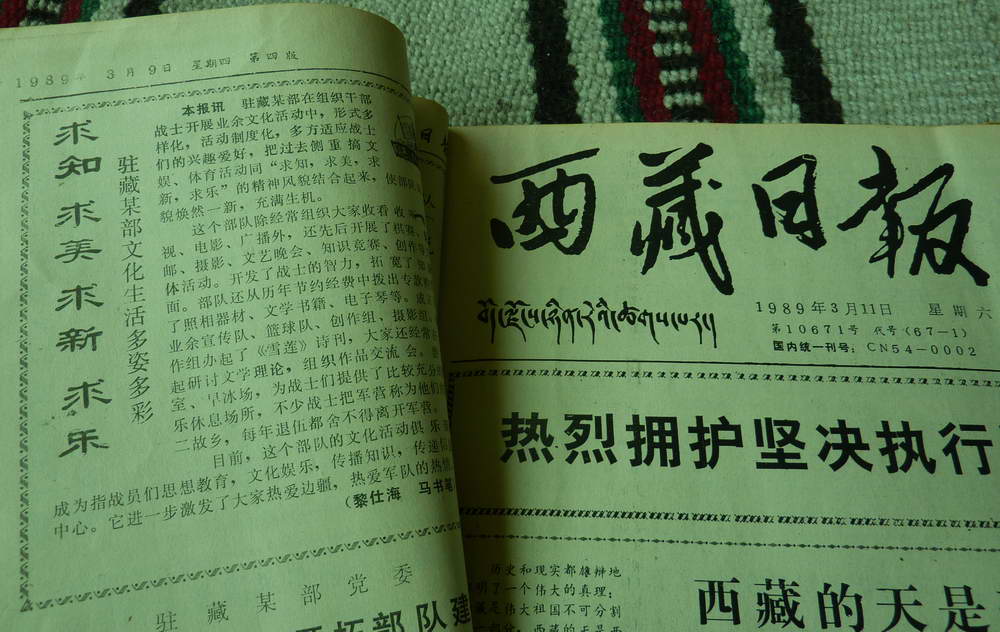 1989年 3月9日 星期四 第四版
求知 求美 求新 求乐
驻藏某部文化生活多姿多彩
本报讯 驻藏某部在组织干部
战士开展业余文化活动中，形式多
样化，活动制度化，多方适应战士
们的兴趣爱好，把过去侧重搞文
娱、体育活动同“求知，求美，求
新，求乐”的精神风貌结合起来，使部队
貌焕然一新，充满生机。
这个部队除经常组织大家收看
视、电影、广播外，还先后开展了棋赛、
邮、摄影、文艺晚会、知识竞赛、创作等
体活动。开发了战士的智力，拓宽了
面。部队还从历年节约经费中拨出专款
了照相器材、文学书籍、电子琴等。成
业余宣传队、篮球队、创作组、摄影组。
作组办起了《雪莲》诗刊，大家还经常
起研讨文学理论，组织作品交流会。
室、旱冰场，为战士们提供了比较充分
乐休息场所，不少战士把军营称为他们
二故乡，每年退伍都舍不得离开军营。
目前，这个部队的文化活动俱乐
成为指战员们思想教育，文化娱乐，传播知识，传递
中心。它进一步激发了大家热爱边疆，热爱军队的热情
（黎仕海 马书
驻藏某部党委
部队建
西藏日报
1989年3月11日 星期六
第10671号 代号（67—1）
国内统一刊号：CN54—0002
热烈拥护坚决执行
历史和现实都雄辩地
明了一个伟大的真理：
藏是伟大祖国不可分割
西藏的天是